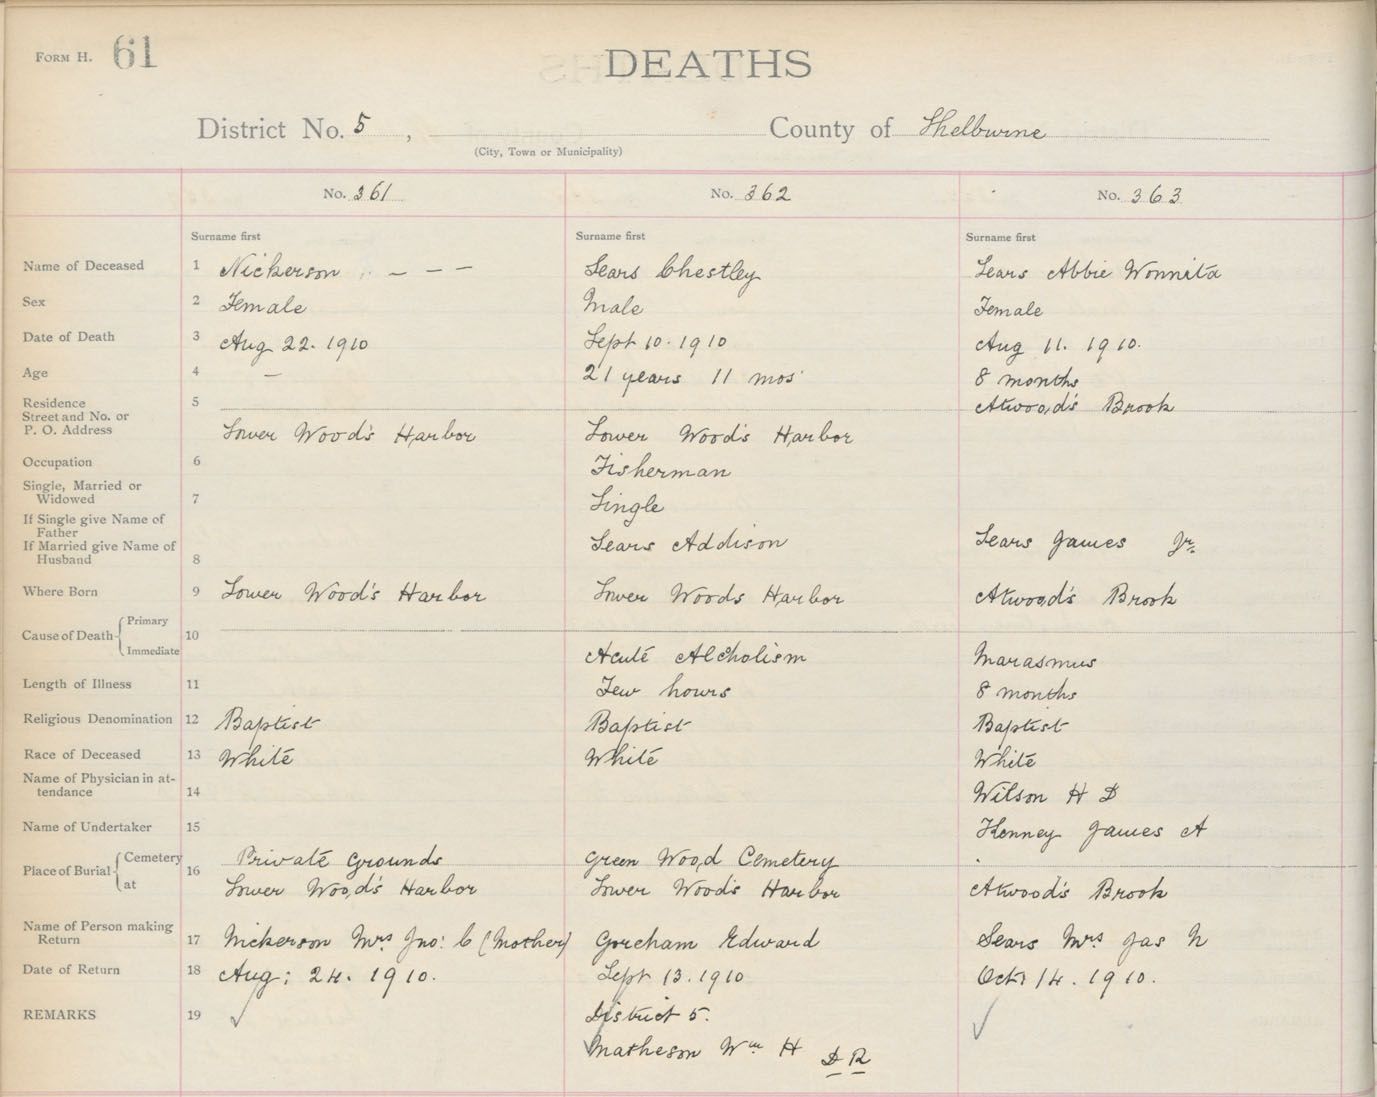 FORM H. 61
DEATHS
District No. 5 , County of Shelburne
(City, Town or Municipality)
No. 361 No. 362 No. 363
Surname first Surname first Surname first
Name of Deceased 1 Nickerson - - - Sears Chestley Sears Abbie Wonnita
Sex 2 Female Male Female
Date of Death 3 Aug 22. 1910 Sept 10. 1910 Aug 11. 1910.
Age 4 - 21 years 11 mos 8 months
Residence 5 Atwood's Brook
Street and No. or
P. O. Address Lower Wood's Harbor Lower Wood's Harbor
Occupation 6 Fisherman
Single, Married or
Widowed 7 Single
If Single give Name of
Father
If Married give Name of Sears Addison Sears James Jr.
Husband 8
Where Born 9 Lower Wood's Harbor Lower Woods Harbor Atwood's Brook
Primary
Cause of Death 10
Immediate Acute Alcholism Marasmus
Length of Illness 11 Few hours 8 months
Religious Denomination 12 Baptist Baptist Baptist
Race of Deceased 13 White White White
Name of Physician in at-
tendance 14 Wilson H D
Name of Undertaker 15 Kenney James A
Cemetery Private Grounds Green Wood Cemetery
Place of Burial 16
at Lower Wood's Harbor Lower Wood's Harbor Atwood's Brook
Name of Person making
Return 17 Nickerson Mrs Jno: C (Mother) Goreham Edward Sears Mrs Jas N
Date of Return 18 Aug: 24. 1910. Sept 13. 1910 Oct 14. 1910.
REMARKS 19 ✓ District 5. ✓
Matheson Wm H D R